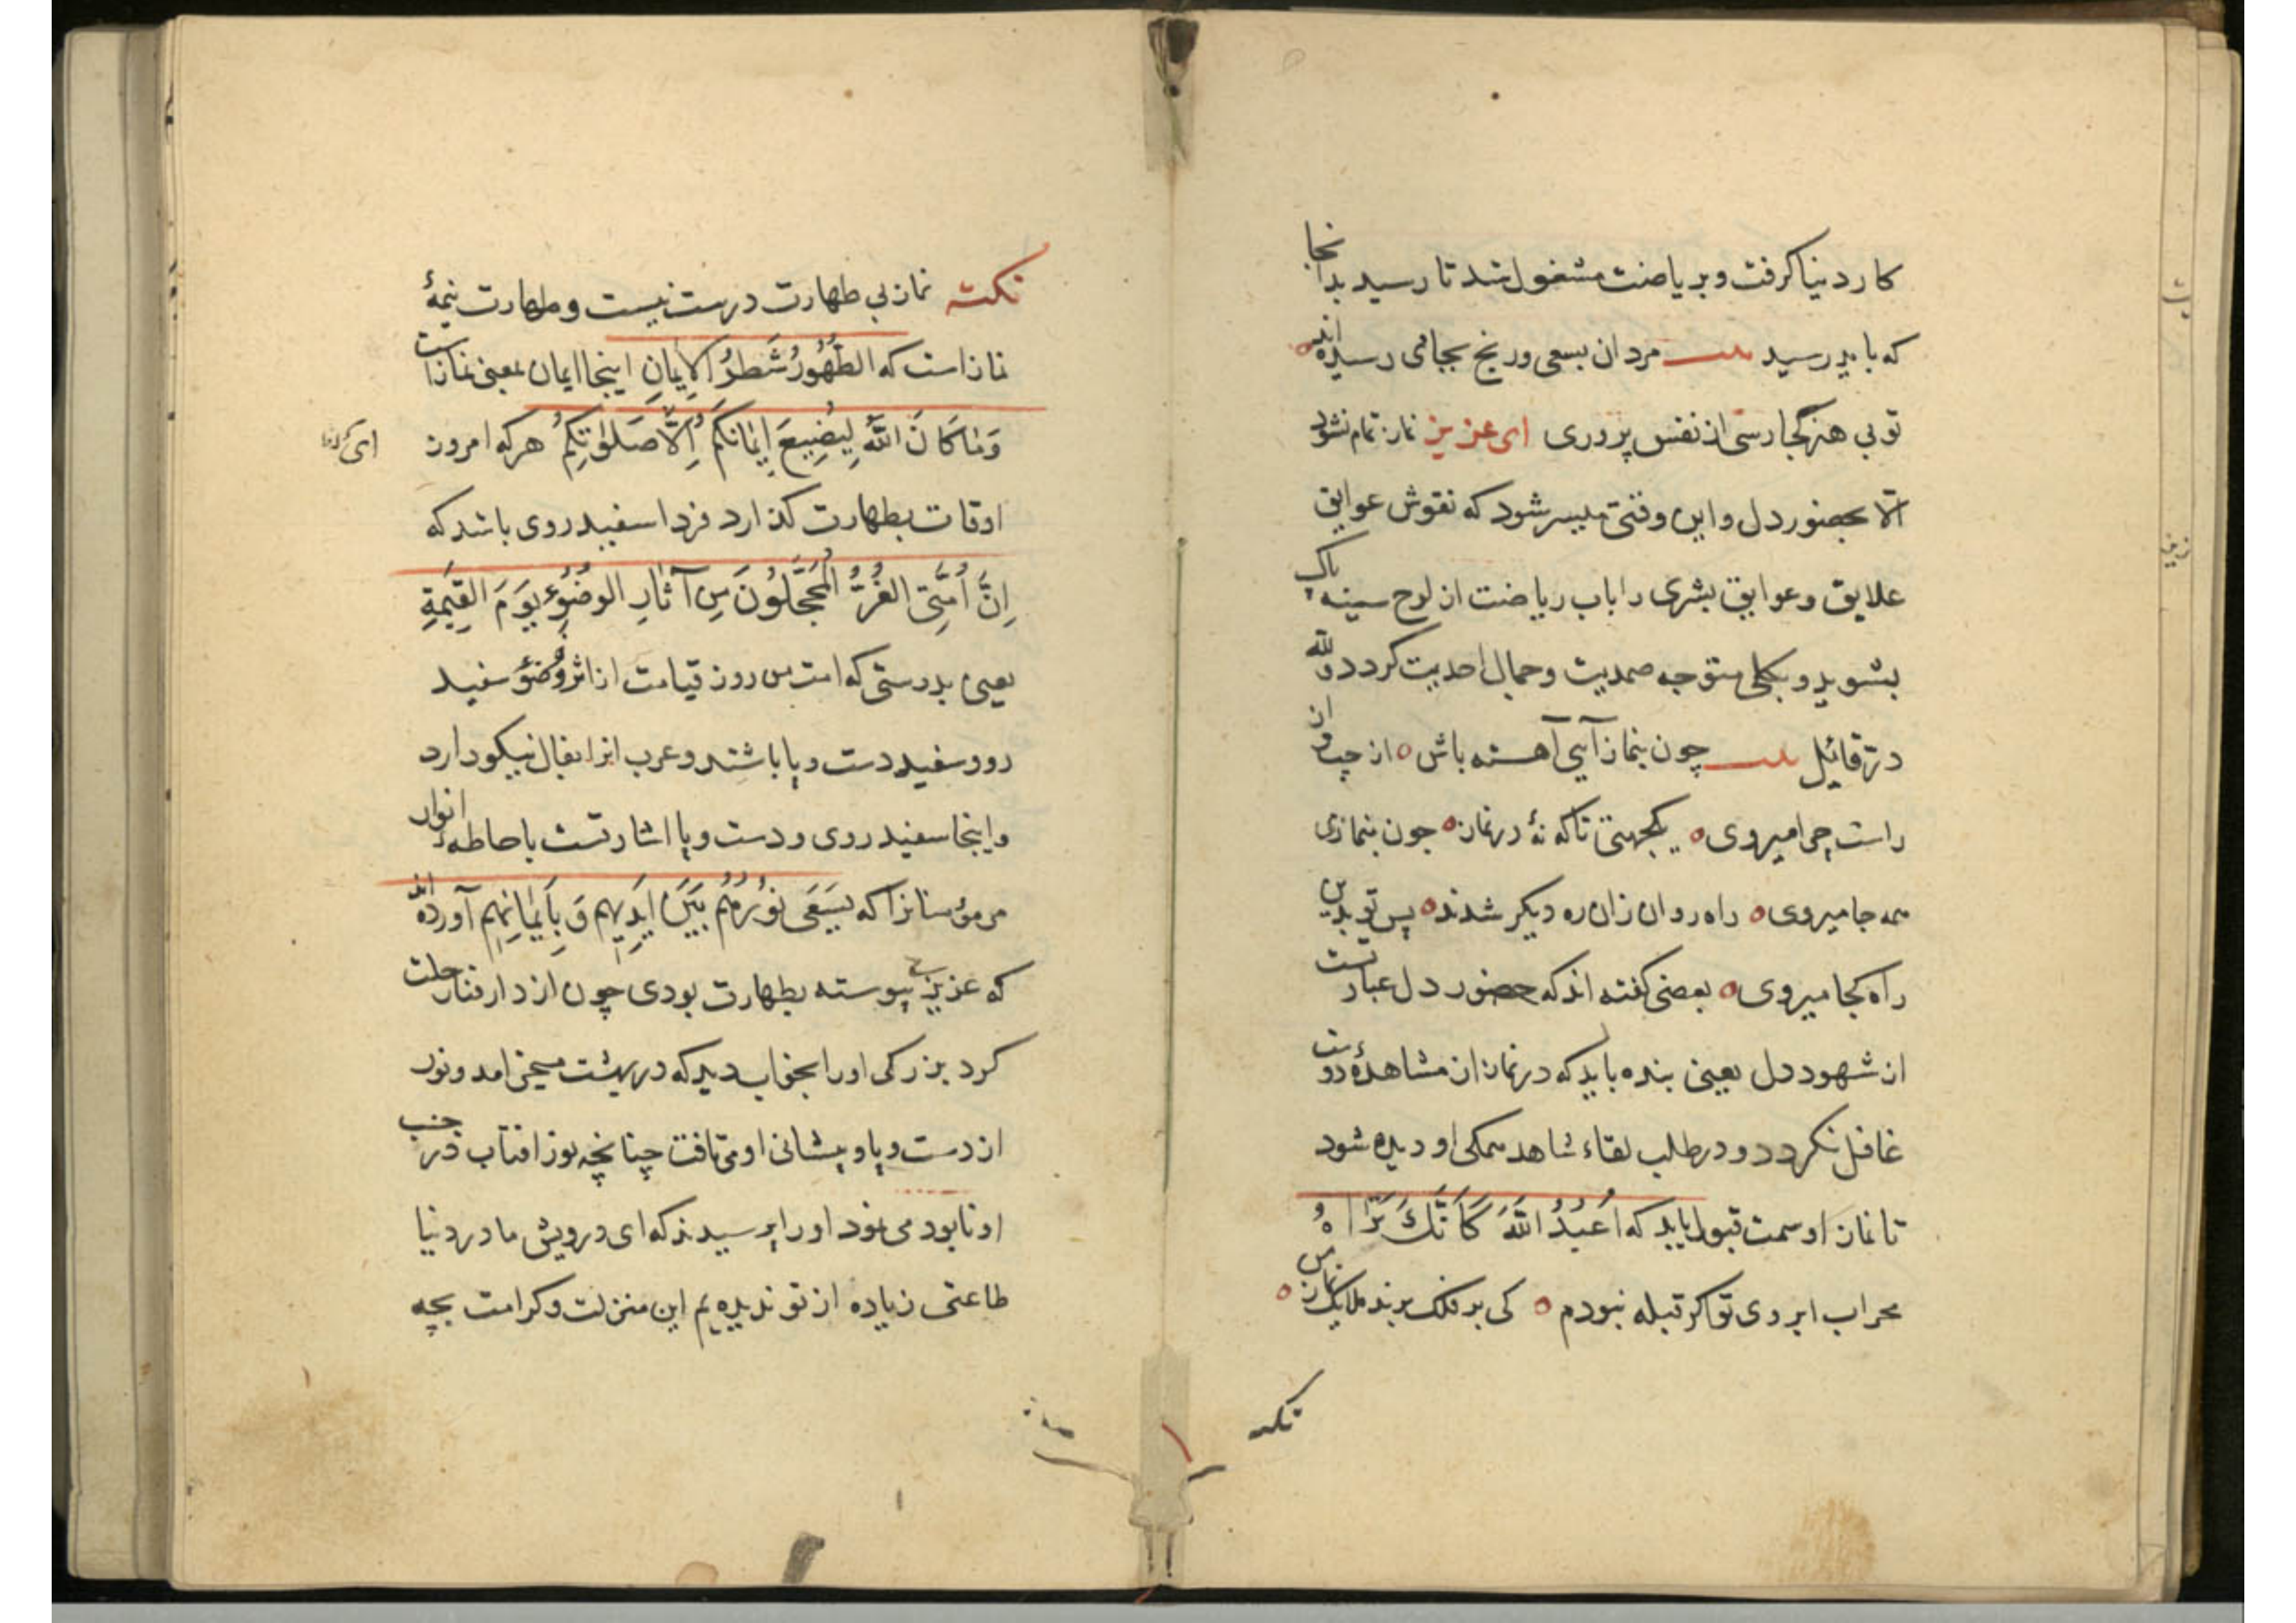 کار دنیا گرفت و بریاضت مشغول شد تا رسید بدانجا
که باید رسید بیت مردان بسعی و رنج بجایی رسیده‌اند
تو بی هنر کجا رسی از نفس پروری ای عزیز نماز تمام نشود
الّا بحضور دل و این وقتی میسر شود که نقوش عوایق
علایق و عوایق بشری را باب ریاضت از لوح سینه پاک
بشوید و بکلی متوجه صمدیت و جمال احدیت کردد ولله
درّ قائل بیت چون بنماز آیی آهسته باش از چپ و از
راست چرا میروی یکجهتی تا که نهٔ در نماز چون بنمازی
همه جا میروی راه روان زان ره دیکر شدند پس تو بدین
راه کجا میروی بعضی کفته اند که حضور دل عبارتست
از شهود دل یعنی بنده باید که در نماز از مشاهدهٔ دوست
غافل نکردد و در طلب لقاء شاهد همکی او دیده شود
تا نماز او سمت قبول یابد که اُعْبُدُ اللّٰهَ کَاَنَّكَ تَرَاهُ
محراب ابروی تو اکر قبله نبودم کی بر فلک برند ملایک نماز من
نکته
نکته نماز بی طهارت درست نیست و طهارت نیمهٔ
نماز است که الطَّهُورُ شَطْرُ الْاِیمَانِ اینجا ایمان بمعنی نماز است
وَمَا کَانَ اللّٰهُ لِیُضِیعَ اِیمَانَکُمْ اِلَّا صَلٰوتَکُمْ هر که امروز
اوقات بطهارت کذارد فردا سفید روی باشد که
اِنَّ اُمَّتِی الْغُرُّ الْمُحَجَّلُونَ مِنْ آثَارِ الوضُوءِ یَوْمَ الْقِیٰمَةِ
یعنی بدرستی که امت من روز قیامت از اثر وُضوُء سفید
رو و سفید دست و پا باشند و عرب انرا بفال نیکو دارد
و اینجا سفید روی و دست و پا اشارتست باحاطهٔ انوار
مر مؤمنانرا که یَسْعَی نُورُهُمْ بَیْنَ اَیْدِیهِمْ وَ بِاَیْمَانِهِمْ آورده‌اند
که عزیزی پیوسته بطهارت بودی چون از دار فنا رحلت
کرد بزرکی اورا بخواب دید که در بهشت می‌خرامد و نور
از دست و پا و پیشانی او می‌تافت چنانچه نور افتاب در جنب
او نابود می‌نمود او را پرسیدند که ای درویش ما در دنیا
طاعتی زیاده از تو ندیدیم این منزلت و کرامت بچه